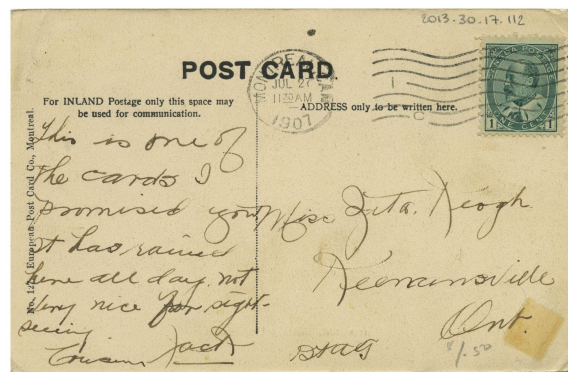 2013.30.17.112
POST CARD
MONTREAL, CAN.
JUL 27
1130AM
1907
C
CANADA POSTAGE
1 1
ONE CENT
For INLAND Postage only this space may
be used for communication.
ADDRESS only to be written here.
No. 127 European Post Card Co., Montreal.
This is one of
the cards I
promised you
It has rained
here all day, not
very nice for sight-
seeing
Cousin Jack
Miss Zita Keogh
Keenansville
Ont.